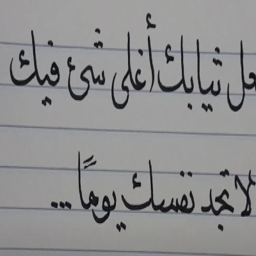 ثيابك أغلى شئ فيك
لا تجد نفسك يوماً ...